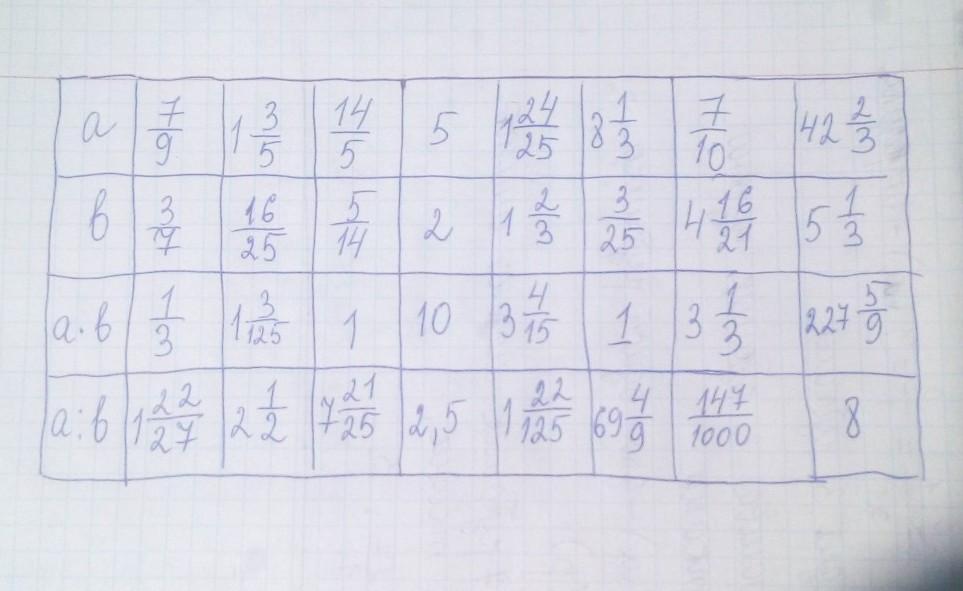 a 7/9 1 3/5 14/5 5 1 24/25 8 1/3 7/10 42 2/3
в 3/7 16/25 5/14 2 1 2/3 3/25 4 16/21 5 1/3
a·в 1/3 1 3/125 1 10 3 4/15 1 3 1/3 227 5/9
a:в 1 22/27 2 1/2 7 21/25 2,5 1 22/125 69 4/9 147/1000 8